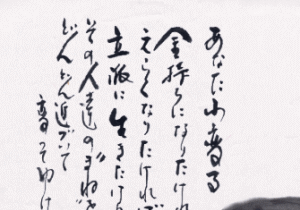 あなたが変る
金持ちになりたけれ
えらくなりたければ
立派に生きたけ
その人達のまねを
どんどん近づいて
変ってゆけ